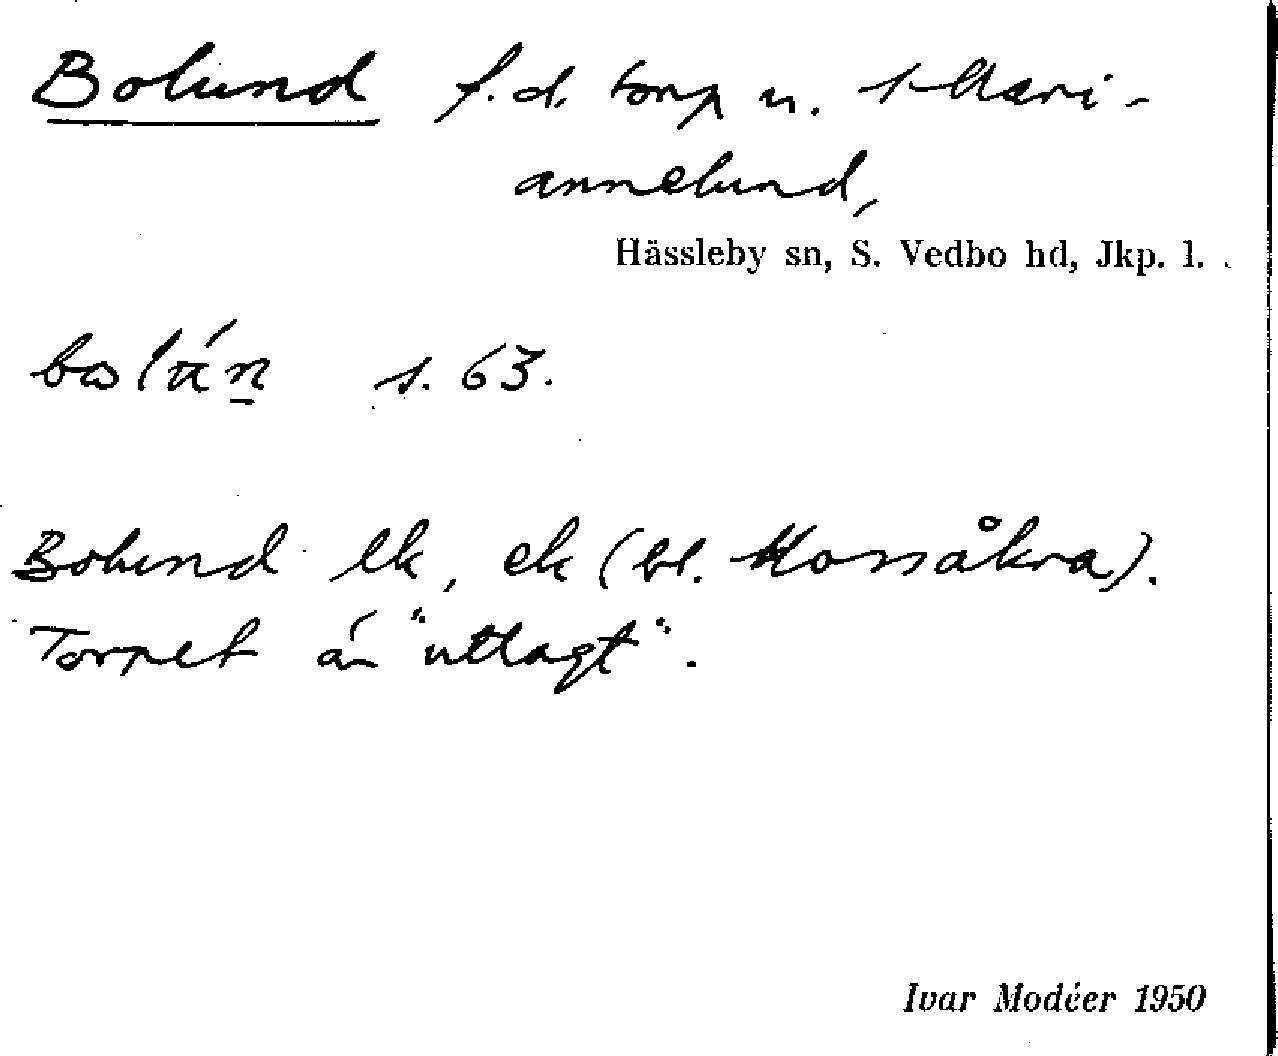 Bolund f.d. torp u. 1 Mari-
annelund,
Hässleby sn, S. Vedbo hd, Jkp. l.
s. 63.
Bolund lk, ek (bl. Morsåkra).
Torpet är "utlagt".
Ivar Modéer 1950